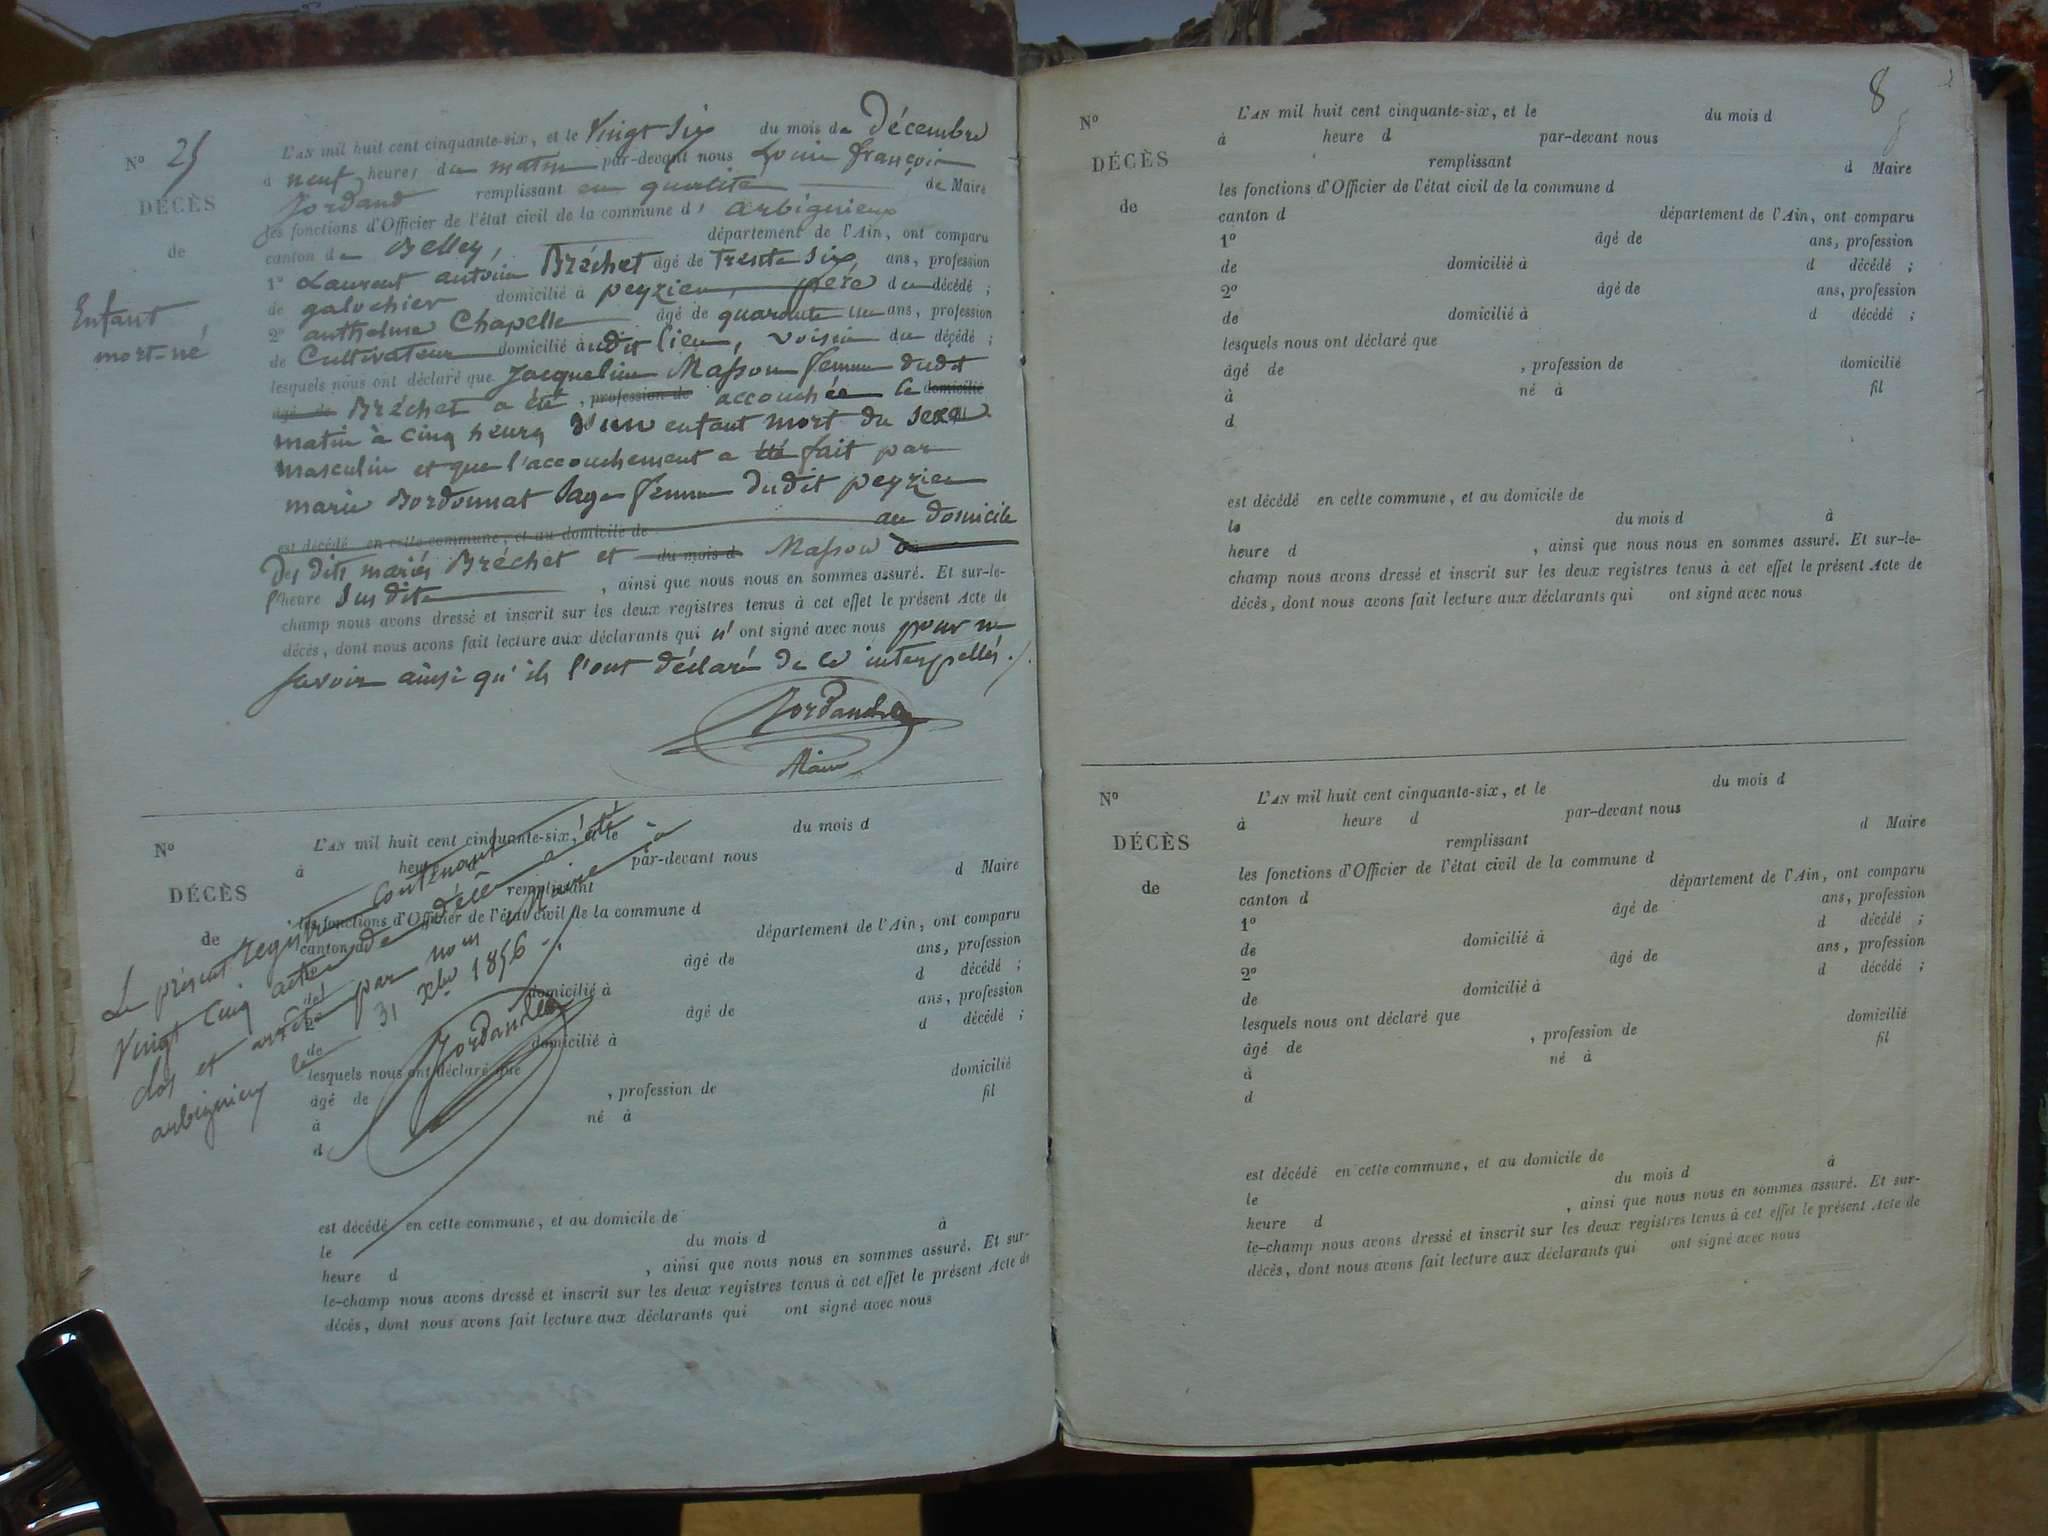 N° 25
DÉCÈS
de
Enfant
mort-né
L'AN mil huit cent cinquante-six, et le Vingt Six du mois de Décembre
à neuf heures du matin par-devant nous Louis françois
Jordand remplissant en qualité de Maire
les fonctions d'Officier de l'état civil de la commune d'arbignieux
canton de Belley, département de l'Ain, ont comparu
1° Laurent antoine Bréchet âgé de trente Six ans, profession
de galochier domicilié à peyzieu, père du décédé ;
2° anthelme Chapelle âgé de quarante un ans, profession
de Cultivateur domicilié audit lieu, voisin du décédé ;
lesquels nous ont déclaré que Jacqueline Masson femme dudit
âgé de Bréchet a été , profession de accouchée le domicilié
matin à cinq heures d'un enfant mort du sexe
masculin et que l'accouchement a été fait par
marie Bordonnat Sage femme dudit peyzieu
est décédé en cette commune, et au domicile de au domicile
des dits mariés Bréchet et du mois d Masson à
l'heure Susdite , ainsi que nous nous en sommes assuré. Et sur-le-
champ nous avons dressé et inscrit sur les deux registres tenus à cet effet le présent Acte de
décès, dont nous avons fait lecture aux déclarants qui n'ont signé avec nous pour ne
savoir ainsi qu'ils l'ont déclaré de ce interpellés ./.
Jordand
Maire
N°
DÉCÈS
de
L'AN mil huit cent cinquante-six, et le du mois d
à heure d par-devant nous
remplissant d Maire
les fonctions d'Officier de l'état civil de la commune d
canton d département de l'Ain, ont comparu
1° âgé de ans, profession
de domicilié à d décédé ;
2° âgé de ans, profession
de domicilié à d décédé ;
lesquels nous ont déclaré que
âgé de , profession de domicilié
à né à fil
d
est décédé en cette commune, et au domicile de
le du mois d à
heure d , ainsi que nous nous en sommes assuré. Et sur-
le-champ nous avons dressé et inscrit sur les deux registres tenus à cet effet le présent Acte de
décès, dont nous avons fait lecture aux déclarants qui ont signé avec nous
Le présent registre contenant
Vingt cinq actes de décès a été
clos et arrêté par nous maire à
arbignieu le 31 xbre 1856 ./.
Jordand
8
N°
DÉCÈS
de
L'AN mil huit cent cinquante-six, et le du mois d
à heure d par-devant nous
remplissant d Maire
les fonctions d'Officier de l'état civil de la commune d
canton d département de l'Ain, ont comparu
1° âgé de ans, profession
de domicilié à d décédé ;
2° âgé de ans, profession
de domicilié à d décédé ;
lesquels nous ont déclaré que
âgé de , profession de domicilié
à né à fil
d
est décédé en cette commune, et au domicile de
le du mois d à
heure d , ainsi que nous nous en sommes assuré. Et sur-le-
champ nous avons dressé et inscrit sur les deux registres tenus à cet effet le présent Acte de
décès, dont nous avons fait lecture aux déclarants qui ont signé avec nous
N°
DÉCÈS
de
L'AN mil huit cent cinquante-six, et le du mois d
à heure d par-devant nous
remplissant d Maire
les fonctions d'Officier de l'état civil de la commune d
canton d département de l'Ain, ont comparu
1° âgé de ans, profession
de domicilié à d décédé ;
2° âgé de ans, profession
de domicilié à d décédé ;
lesquels nous ont déclaré que
âgé de , profession de domicilié
à né à fil
d
est décédé en cette commune, et au domicile de
le du mois d à
heure d , ainsi que nous nous en sommes assuré. Et sur-
le-champ nous avons dressé et inscrit sur les deux registres tenus à cet effet le présent Acte de
décès, dont nous avons fait lecture aux déclarants qui ont signé avec nous